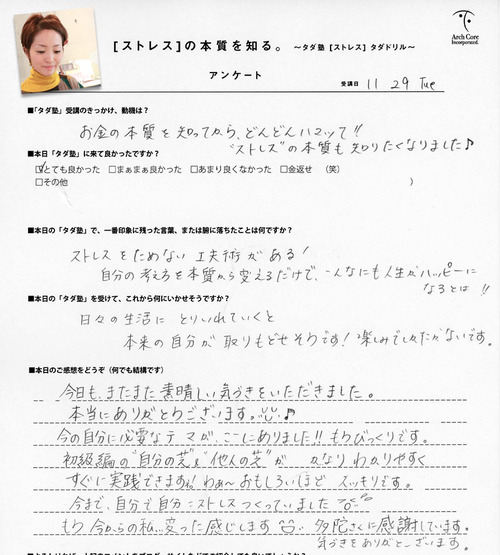 Arch Core
Incorporated.
[ストレス]の本質を知る。 ～タダ塾 [ストレス] タダドリル～
アンケート
受講日 11 29 Tue
■「タダ塾」受講のきっかけ、動機は？
お金の本質を知ってから、どんどんハマって!!
"ストレス"の本質も知りたくなりました♪
■本日「タダ塾」に来て良かったですか？
☑とても良かった □まぁまぁ良かった □あまり良くなかった □金返せ （笑）
□その他 ）
■本日の「タダ塾」で、一番印象に残った言葉、または腑に落ちたことは何ですか？
ストレスをためない工夫術がある!
自分の考え方を本質から変えるだけで、こんなにも人生がハッピーに
なるとは!!
■本日の「タダ塾」を受けて、これから何にいかせそうですか？
日々の生活にとりいれていくと
本来の自分が取りもどせそうです!楽しみでしかたがないです。
■本日のご感想をどうぞ（何でも結構です）
今日も、またまた素晴しい気づきをいただきました。
本当にありがとうございます。♪
今の自分に必要なテーマが、ここにありました!!もうびっくりです。
初級編の"自分の芝"と"他人の芝"が かなりわかりやすく
すぐに実践できますね!わぁ～おもしろいほどスッキリです。
今まで、自分で自分にストレスつくっていました
もう今からの私、変った感じします 多陀さんに感謝しています。
気づきをありがとうございます。